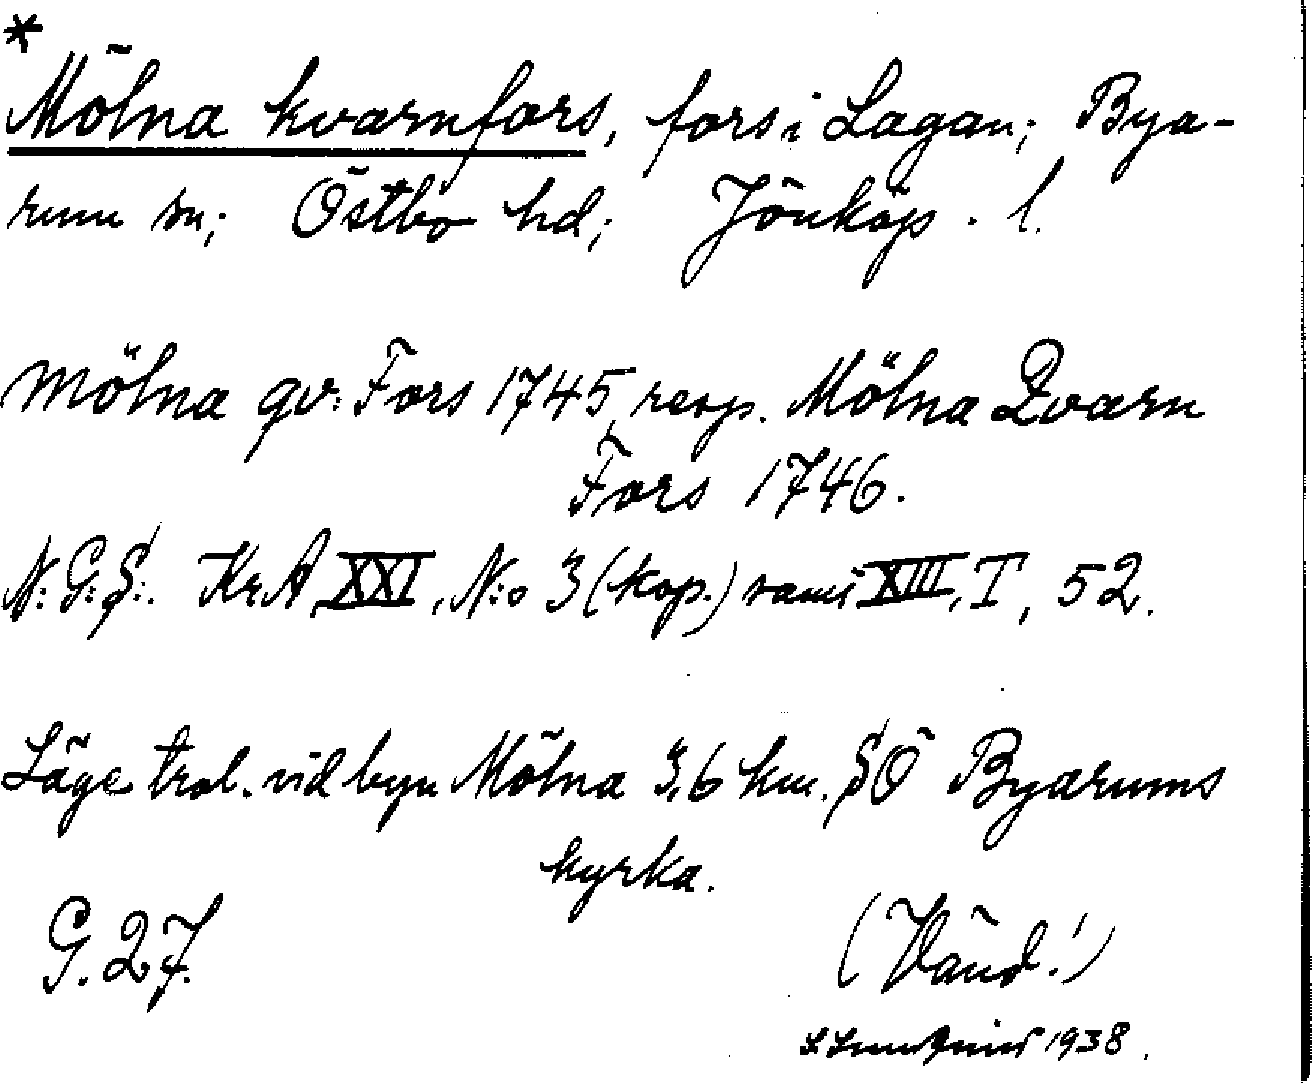 *
Mölna kvarnfors, fors i Lagan; Bya-
rum sn; Östbo hd; Jönköp. l.
Mölna qv: Fors 1745, resp. Mölna Qvarn
Fors 1746.
N:G:S:. Kr.A XXI, N:o 3 (kop.) samt XIII, I, 52.
Läge trol. vid byn Mölna 3,6 km. SÖ Byarums
kyrka.
G. 27.
(Vänd!)
1938.